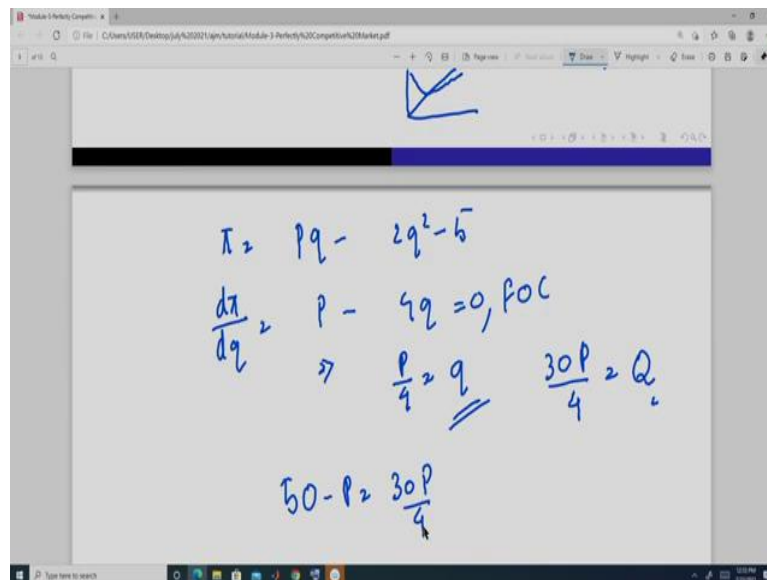 Module-3-Perfectly Competiti
File | C:/Users/USER/Desktop/july%202021/ajm/tutorial/Module-3-Perfectly%20Competitive%20Market.pdf
Page view
Draw
Highlight
π = Pq - 2q² - 5
dπ/dq = P - 4q = 0, FOC
⇒ P/4 = q
30P/4 = Q
50 - P = 30P/4
Type here to search